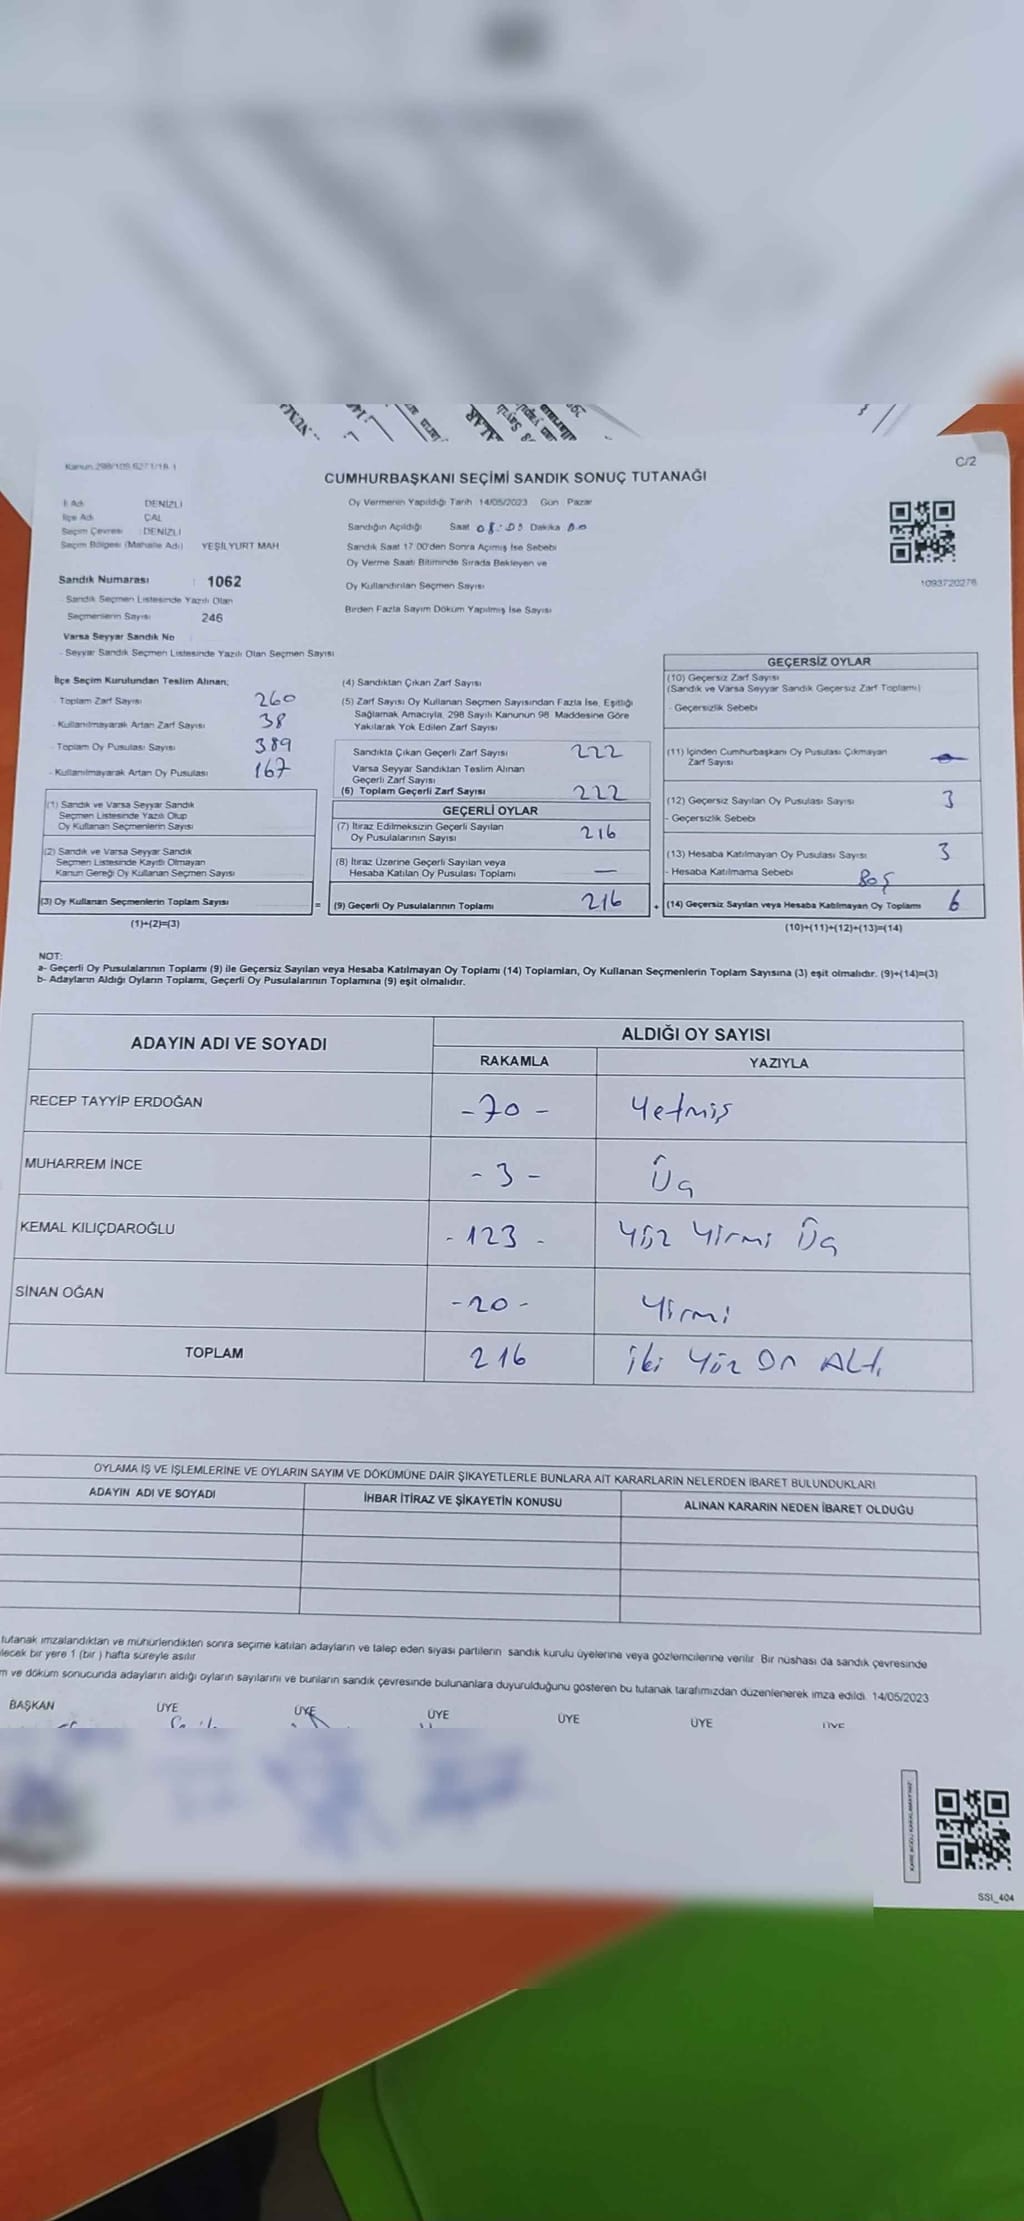 Kanun.298/109.627 1/18-1
C/2
CUMHURBAŞKANI SEÇİMİ SANDIK SONUÇ TUTANAĞI
İl Adı DENİZLİ
İlçe Adı ÇAL
Seçim Çevresi : DENİZLİ
Seçim Bölgesi (Mahalle Adı) YEŞİLYURT MAH
Sandık Numarası : 1062
- Sandık Seçmen Listesinde Yazılı Olan
Seçmenlerin Sayısı 246
Varsa Seyyar Sandık No
- Seyyar Sandık Seçmen Listesinde Yazılı Olan Seçmen Sayısı
Oy Vermenin Yapıldığı Tarih 14/05/2023 Gün Pazar
Sandığın Açıldığı Saat 08:00 Dakika
Sandık Saat 17:00'den Sonra Açımış İse Sebebi
Oy Verme Saati Bitiminde Sırada Bekleyen ve
Oy Kullandırılan Seçmen Sayısı
Birden Fazla Sayım Döküm Yapılmış İse Sayısı
1093720276
İlçe Seçim Kurulundan Teslim Alınan;
- Toplam Zarf Sayısı 260
- Kullanılmayarak Artan Zarf Sayısı 38
- Toplam Oy Pusulası Sayısı 389
- Kullanılmayarak Artan Oy Pusulası 167
(1) Sandık ve Varsa Seyyar Sandık
Seçmen Listesinde Yazılı Olup
Oy Kullanan Seçmenlerin Sayısı
(2) Sandık ve Varsa Seyyar Sandık
Seçmen Listesinde Kayıtlı Olmayan
Kanun Gereği Oy Kullanan Seçmen Sayısı
(3) Oy Kullanan Seçmenlerin Toplam Sayısı =
(1)+(2)=(3)
(4) Sandıktan Çıkan Zarf Sayısı
(5) Zarf Sayısı Oy Kullanan Seçmen Sayısından Fazla İse, Eşitliği
Sağlamak Amacıyla, 298 Sayılı Kanunun 98. Maddesine Göre
Yakılarak Yok Edilen Zarf Sayısı
Sandıkta Çıkan Geçerli Zarf Sayısı 222
Varsa Seyyar Sandıktan Teslim Alınan
Geçerli Zarf Sayısı
(6) Toplam Geçerli Zarf Sayısı 222
GEÇERLİ OYLAR
(7) İtiraz Edilmeksizin Geçerli Sayılan
Oy Pusulalarının Sayısı 216
(8) İtiraz Üzerine Geçerli Sayılan veya
Hesaba Katılan Oy Pusulası Toplamı —
(9) Geçerli Oy Pusulalarının Toplamı 216 +
GEÇERSİZ OYLAR
(10) Geçersiz Zarf Sayısı
(Sandık ve Varsa Seyyar Sandık Geçersiz Zarf Toplamı)
- Geçersizlik Sebebi
(11) İçinden Cumhurbaşkanı Oy Pusulası Çıkmayan
Zarf Sayısı
(12) Geçersiz Sayılan Oy Pusulası Sayısı 3
- Geçersizlik Sebebi
(13) Hesaba Katılmayan Oy Pusulası Sayısı 3
- Hesaba Katılmama Sebebi Boş
(14) Geçersiz Sayılan veya Hesaba Katılmayan Oy Toplamı 6
(10)+(11)+(12)+(13)=(14)
NOT:
a- Geçerli Oy Pusulalarının Toplamı (9) ile Geçersiz Sayılan veya Hesaba Katılmayan Oy Toplamı (14) Toplamları, Oy Kullanan Seçmenlerin Toplam Sayısına (3) eşit olmalıdır. (9)+(14)=(3)
b- Adayların Aldığı Oyların Toplamı, Geçerli Oy Pusulalarının Toplamına (9) eşit olmalıdır.
ADAYIN ADI VE SOYADI
ALDIĞI OY SAYISI
RAKAMLA YAZIYLA
RECEP TAYYİP ERDOĞAN -70- Yetmiş
MUHARREM İNCE -3- Üç
KEMAL KILIÇDAROĞLU -123- Yüz Yirmi Üç
SİNAN OĞAN -20- Yirmi
TOPLAM 216 İki Yüz On Altı
OYLAMA İŞ VE İŞLEMLERİNE VE OYLARIN SAYIM VE DÖKÜMÜNE DAİR ŞİKAYETLERLE BUNLARA AİT KARARLARIN NELERDEN İBARET BULUNDUKLARI
ADAYIN ADI VE SOYADI İHBAR İTİRAZ VE ŞİKAYETİN KONUSU ALINAN KARARIN NEDEN İBARET OLDUĞU
tutanak imzalandıktan ve mühürlendikten sonra seçime katılan adayların ve talep eden siyasi partilerin sandık kurulu üyelerine veya gözlemcilerine verilir. Bir nüshası da sandık çevresinde
lecek bir yere 1 (bir ) hafta süreyle asılır
m ve döküm sonucunda adayların aldığı oyların sayılarını ve bunların sandık çevresinde bulunanlara duyurulduğunu gösteren bu tutanak tarafımızdan düzenlenerek imza edildi. 14/05/2023
BAŞKAN ÜYE ÜYE ÜYE ÜYE ÜYE ÜYE
SSI_404